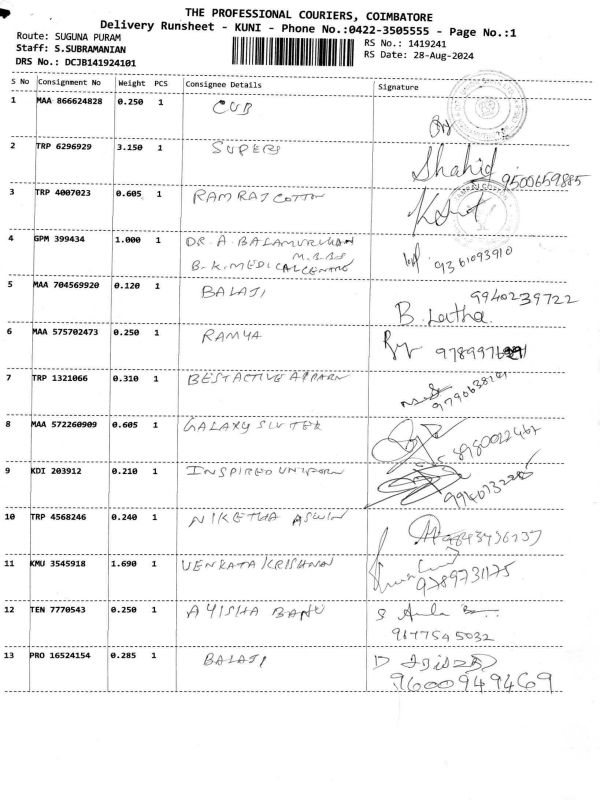 THE PROFESSIONAL COURIERS, COIMBATORE
Delivery Runsheet - KUNI - Phone No.:0422-3505555 - Page No.:1
Route: SUGUNA PURAM
RS No.: 1419241
Staff: S.SUBRAMANIAN
RS Date: 28-Aug-2024
DRS No.: DCJB141924101
S No Consignment No Weight PCS Consignee Details Signature
1 MAA 866624828 0.250 1 CUB
2 TRP 6296929 3.150 1 SUPERS Shahid
9500659885
3 TRP 4007023 0.605 1 RAMRAJ COTTON
4 GPM 399434 1.000 1 DR. A. BALAMURUKAN
M.B.B.S
B.K. MEDICAL CENTRE
9361093910
5 MAA 704569920 0.120 1 BALAJI 9940239722
B. Latha.
6 MAA 575702473 0.250 1 RAMYA
7 TRP 1321066 0.310 1 BEST ACTIVE APPARN
8 MAA 572260909 0.605 1 GALAXY
9 KDI 203912 0.210 1 INSPIRED UNIFORM
10 TRP 4568246 0.240 1 NIKETHA ASWIN
11 KMU 3545918 1.690 1 VENKATA KRISHNAN
9789731175
12 TEN 7770543 0.250 1 AYISHA BANU
9677545032
13 PRO 16524154 0.285 1 BALAJI
9600949469